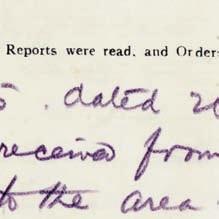 Reports were read, and Order
5. dated 2
received from
to the area